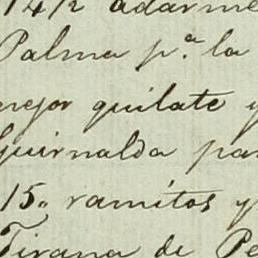 14½ adarme
Palma p.ª la
mejor quilate y
Guirnalda pa
15,, ramitos y
Tirana de Pe